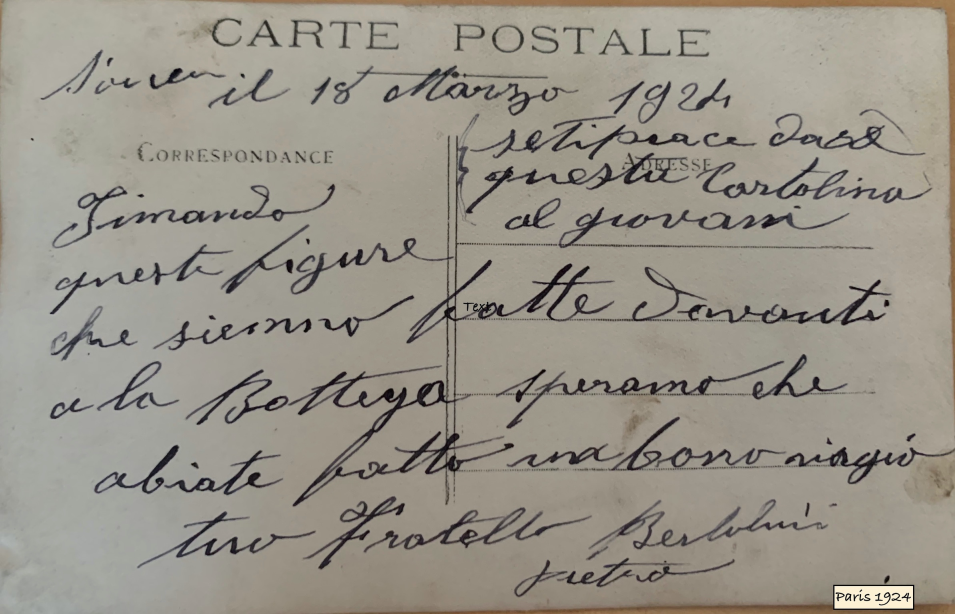 CARTE POSTALE
il 18 Marzo 1924
CORRESPONDANCE
ADRESSE
se ti piace dare
questa Cartolina
al giovani
Timando
queste figure
che siemno fatte davanti
a la Bottega speramo che
abiate fatto una bono viagio
tuo Fratello Bertolini
pietro
Text
Paris 1924